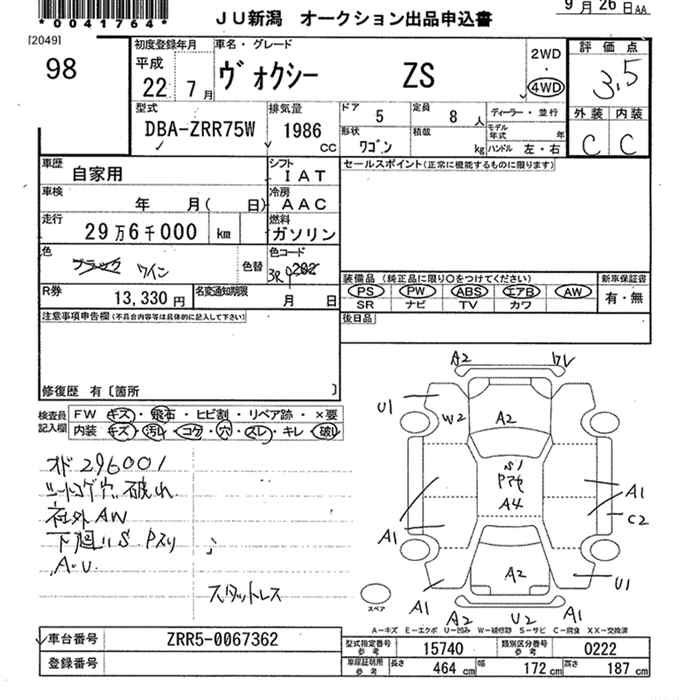 *0041764*
9月26日AA
JU新潟 オークション出品申込書
[2049]
98
初度登録年月
平成
22 7月
車名・グレード
ヴォクシー ZS
2WD
・
4WD
評価点
3.5
外装 内装
C C
型式
DBA-ZRR75W
排気量
1986
cc
ドア
5
定員
8人
ディーラー・並行
形状
ワゴン
積載
kg
モデル年式 年
ハンドル 左・右
車歴
自家用
シフト
IAT
車検
年 月( 日)
冷房
AAC
走行
29万6千000 km
燃料
ガソリン
色
ブラック ワイン
色替
色コード
3R9 202
R券
13,330円
名変通知期限
月 日
セールスポイント(正常に機能するものに限ります)
装備品(純正品に限り○をつけてください)
PS PW ABS エアB AW
SR ナビ TV カワ
新車保証書
有・無
後日品
注意事項申告欄(不具合内容等は具体的に記入して下さい)
修復歴 有〔箇所 〕
検査員
記入欄
FW キズ・飛石・ヒビ割・リペア跡・×要
内装 キズ・汚れ・コゲ・穴・スレ・キレ・破レ
オド296001
シートコゲ穴 破れ
社外AW
下廻りS Pスリ
A・U
スタットレス
A2
U1
W2
A2
S1
A4
A1
A1
C2
A2
U1
A1
A2
U2
A1
スペア
A-キズ E-エクボ U-凹み W-補修跡 S-サビ C-腐食 XX-交換済
車台番号 ZRR5-0067362
登録番号
型式指定番号
参考
15740
類別区分番号
参考
0222
車庫証明用
参考
長さ
464 cm
幅
172 cm
高さ
187 cm